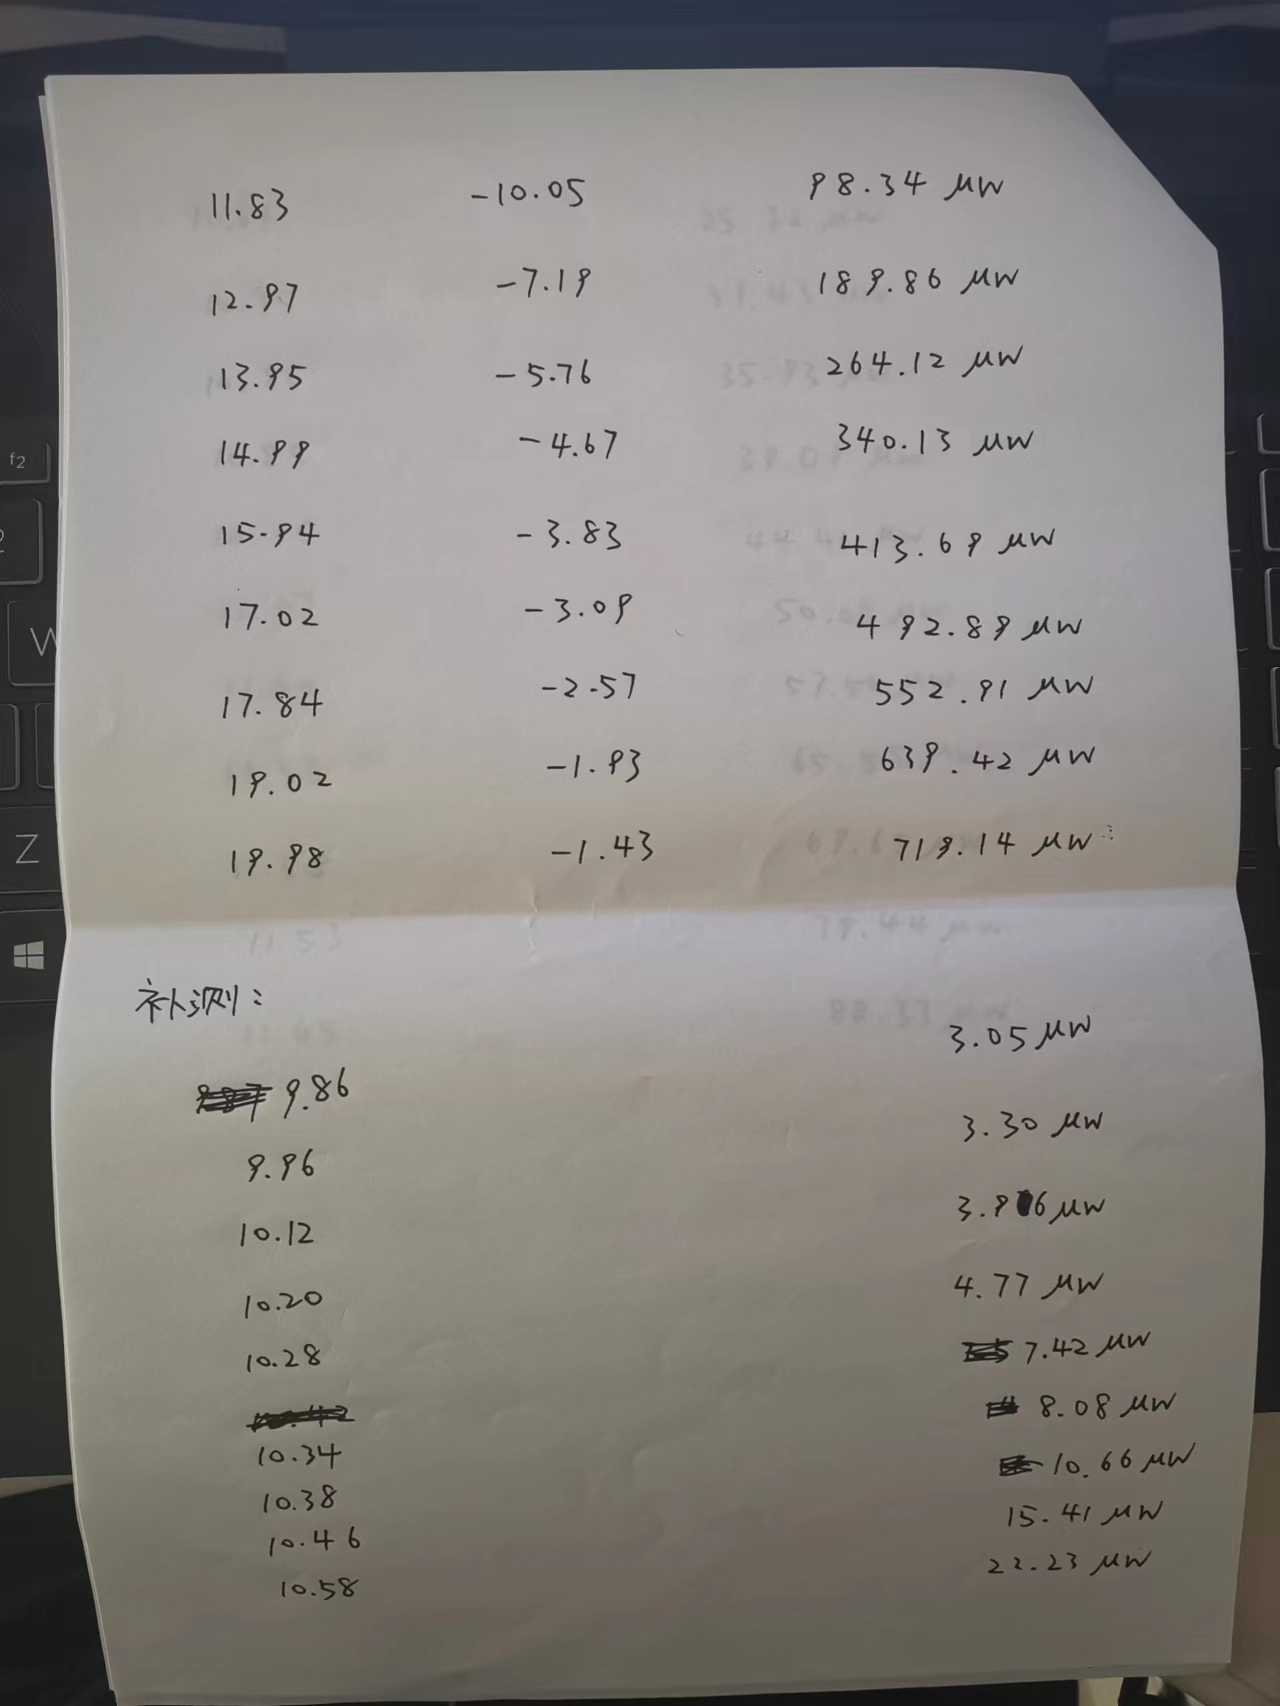 11.83 -10.05 98.34 μW
12.97 -7.19 189.86 μW
13.95 -5.76 264.12 μW
14.99 -4.67 340.13 μW
15.94 -3.83 413.69 μW
17.02 -3.09 492.89 μW
17.84 -2.57 552.91 μW
19.02 -1.93 639.42 μW
19.98 -1.43 719.14 μW
补测:
9.86 3.05 μW
9.96 3.30 μW
10.12 3.96 μW
10.20 4.77 μW
10.28 7.42 μW
10.34 8.08 μW
10.38 10.66 μW
10.46 15.41 μW
10.58 22.23 μW
f2
W
Z